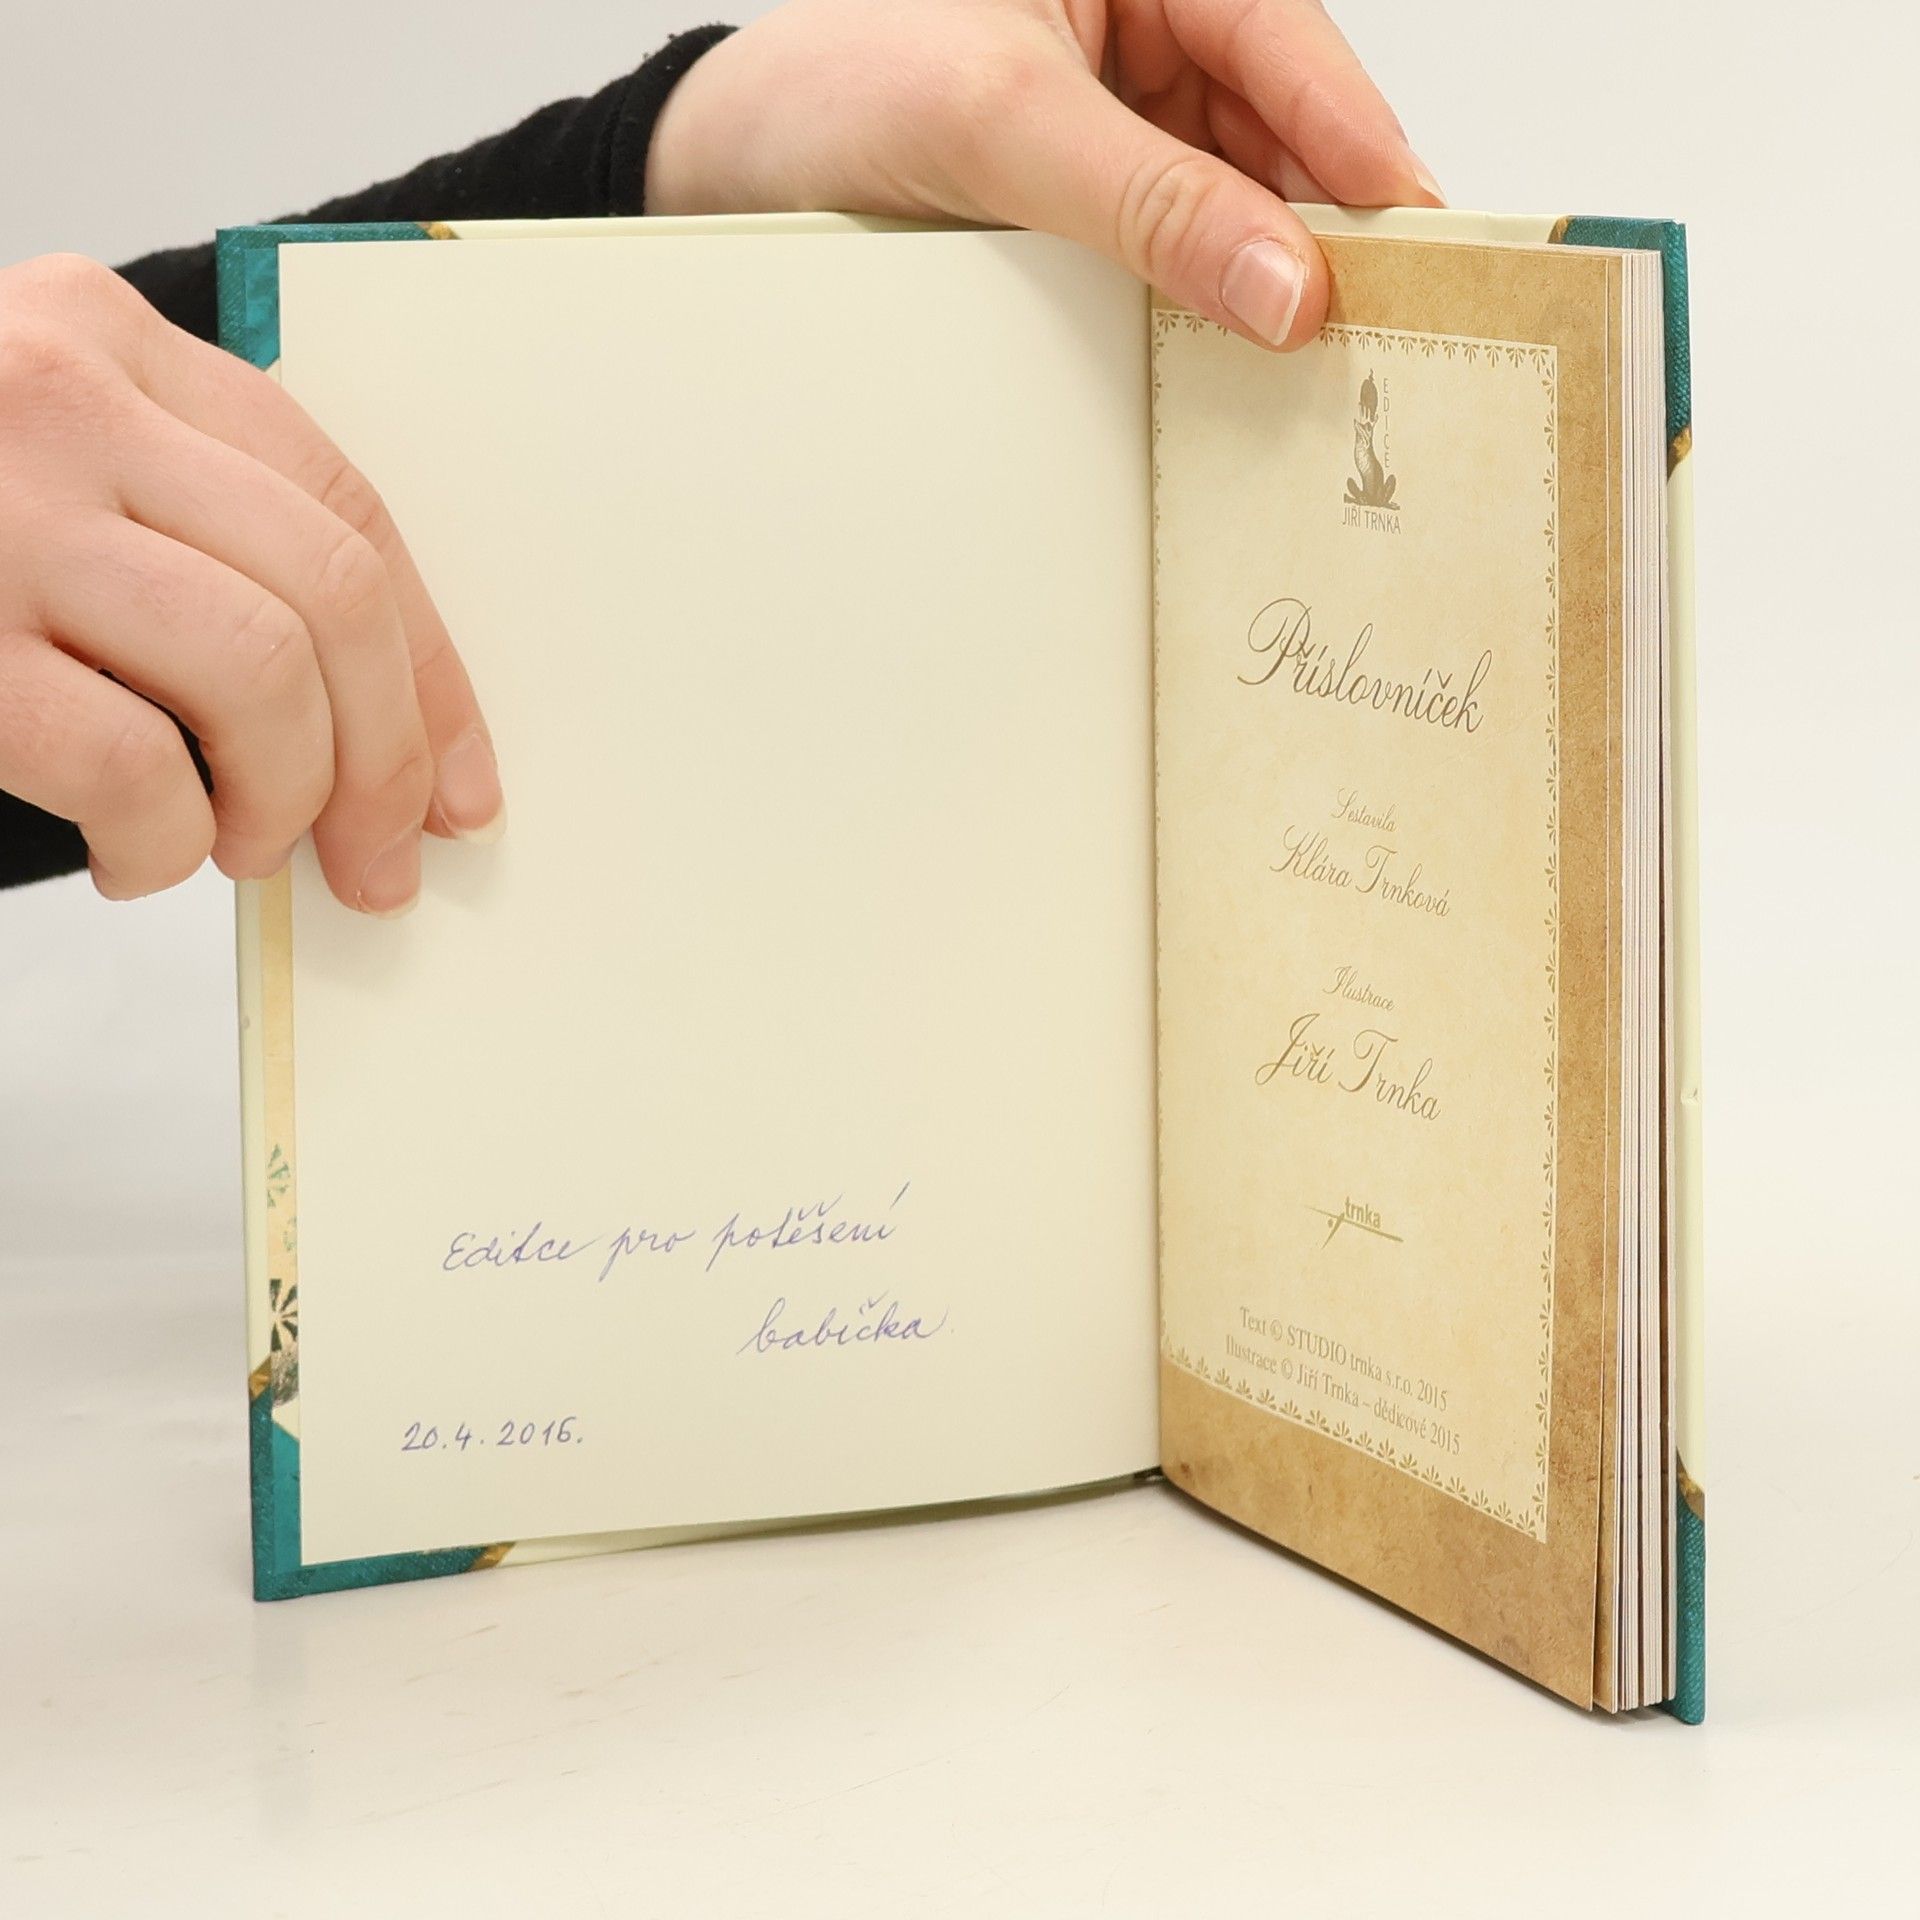 Editce pro potěšení
babička
20.4.2016.
EDICE
JIŘÍ TRNKA
Příslovníček
Sestavila
Klára Trnková
Ilustrace
Jiří Trnka
trnka
Text © STUDIO trnka s.r.o. 2015
Ilustrace © Jiří Trnka – dědicové 2015